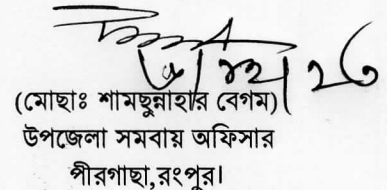 (মোছাঃ শামছুন্নাহার বেগম)
উপজেলা সমবায় অফিসার
পীরগাছা,রংপুর।